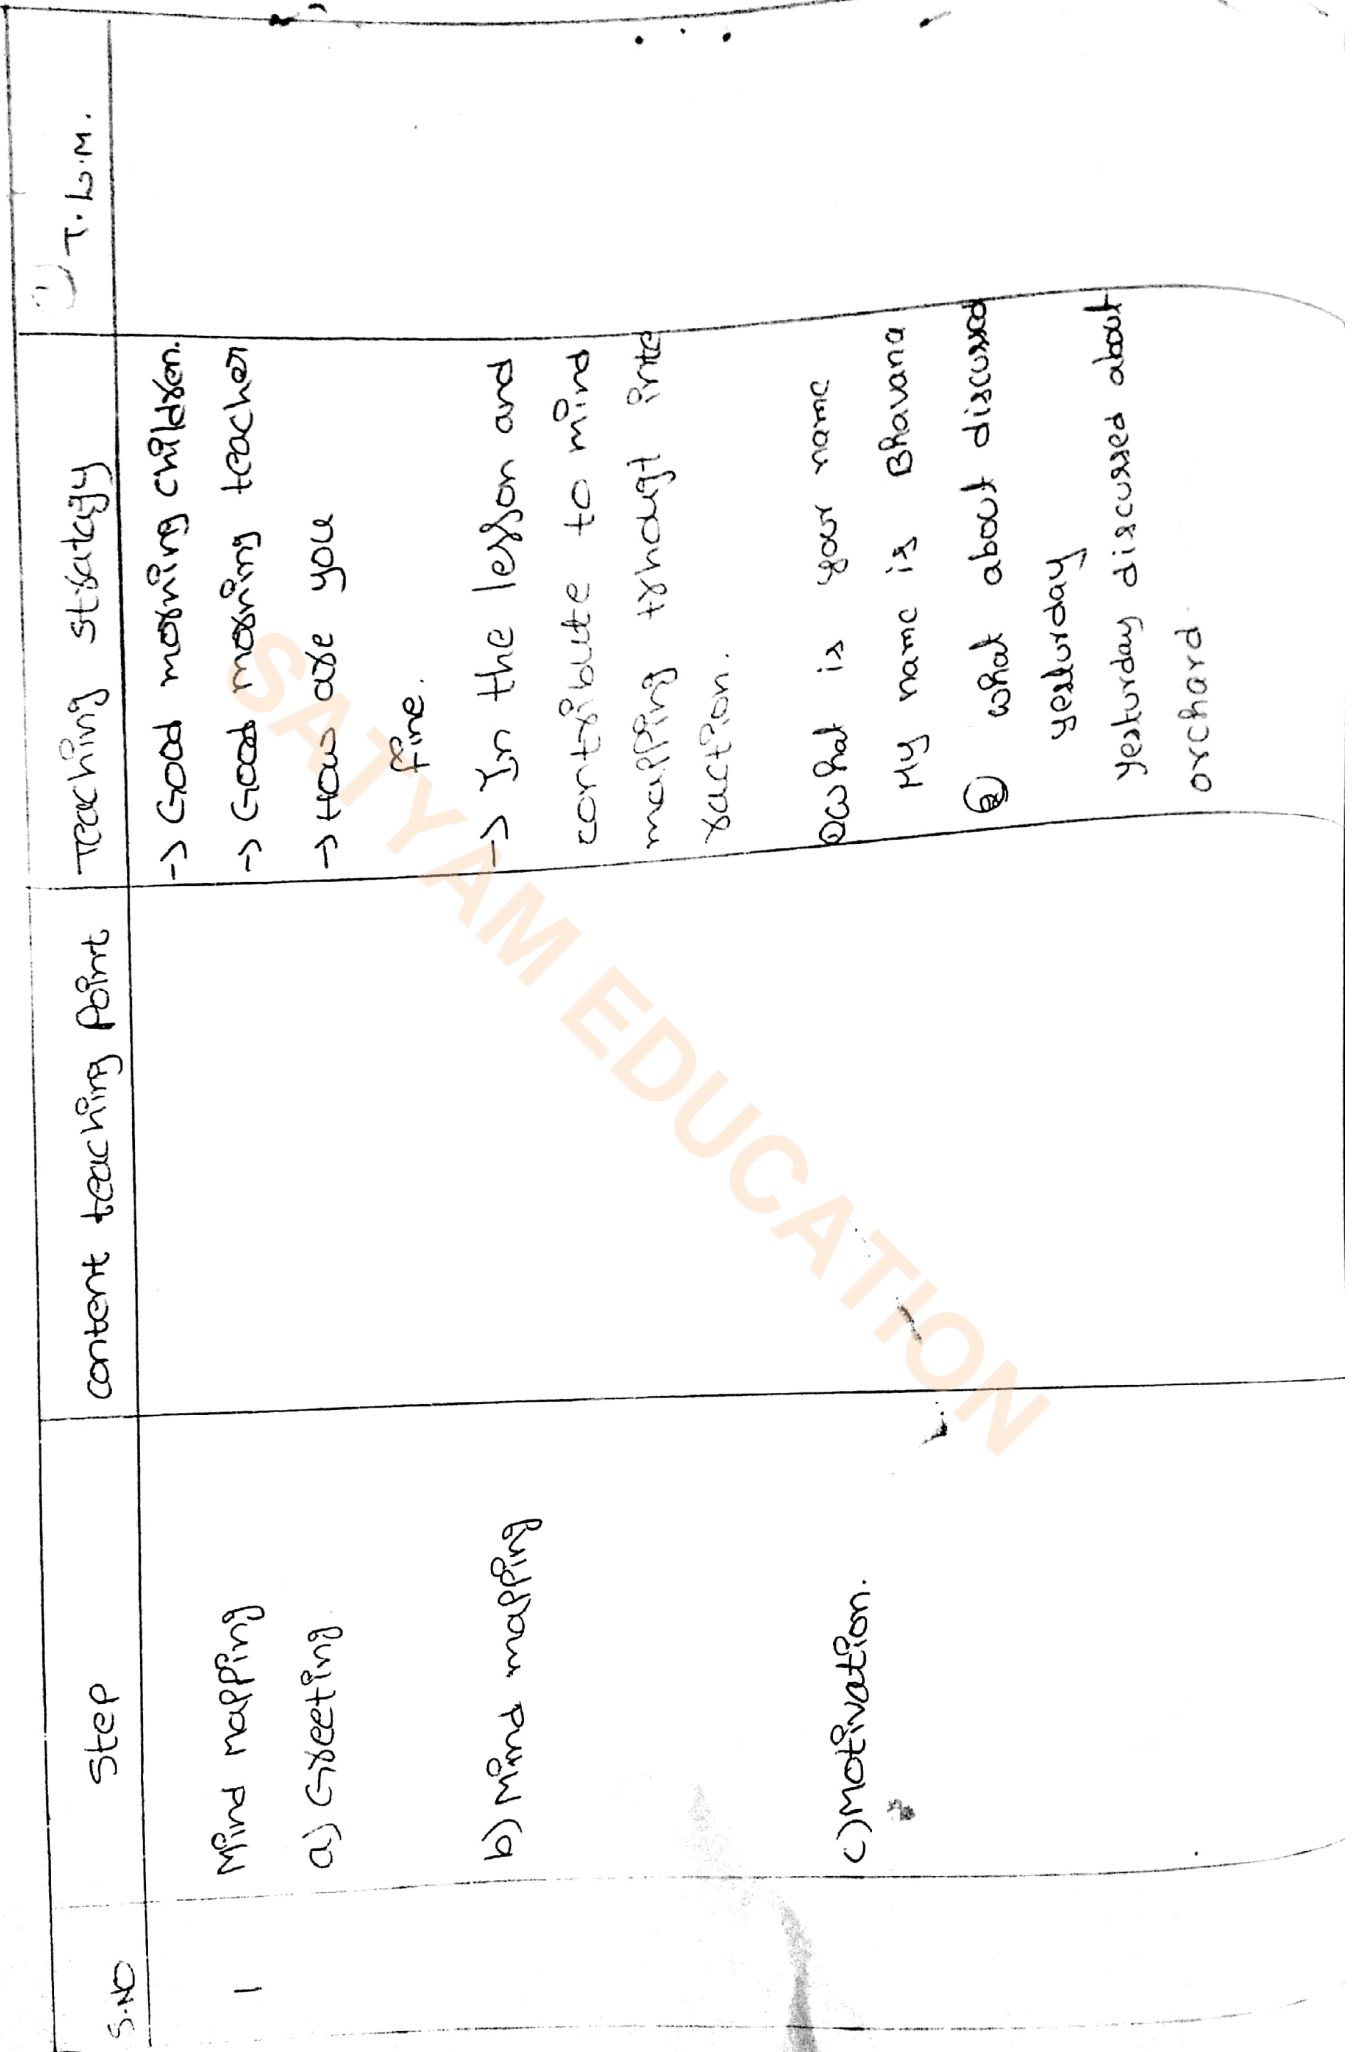 S.NO
Step
content teaching point
Teaching stratagy
T.L.M.
1
Mind mapping
a) Greeting
b) Mind mapping
c) Motivation.
-> Good morning children.
-> Good morning teacher
-> How are you
fine.
-> In the lesson and
contribute to mind
mapping trhougt inte
raction.
① What is your name
My name is Bhavana
② what about discussed
yesturday
yesturday discussed about
orchard.
SATYAM EDUCATION